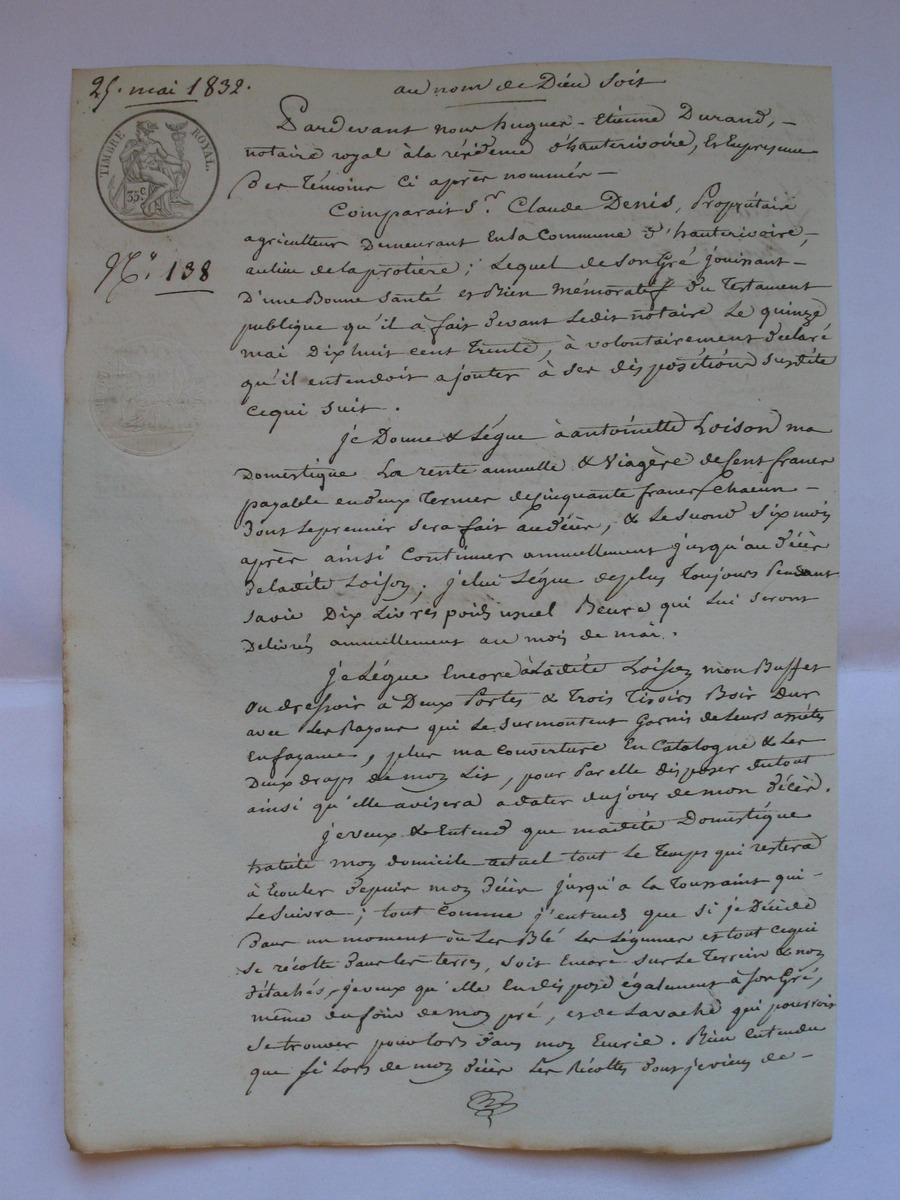 25. mai 1832.
au nom de Dieu soit
TIMBRE ROYAL.
35 c.
N.° 138
Pardevant nous hugues-Etienne Durand, -
notaire royal à la résidence d'hauterivoire, Et En presence
Des Témoins Ci après nommés -
Comparait S.r Claude Denis, Propriétaire
agriculteur Demeurant En la Commune d'hauterivoire, -
au lieu de la protière; Lequel de Son Gré jouissant -
D'une Bonne Santé et Bien Mémoratif du Testament
publique qu'il à fait devant Ledit notaire Le quinze
mai Dix huit cent Trente, à volontairement déclaré
qu'il entendoit ajouter à ses dispositions susdite
ce qui suit.
je Donne & Légue à antoinette Loison ma
Domestique La rente annuelle & Viagère de Cent francs
payable en deux Termes de Cinquante francs Chacun -
dont Le premier sera fait au décès, & Le Second Six mois
après ainsi Continuer annuellement jusqu'au décès
de ladite Loison. je lui Légue de plus Toujours Pendant
sa vie Dix Livres poids usuel Beure qui Lui seront
Délivrés annuellement au mois de mai.
je Légue Encore à Ladite Loison mon Buffet
ou dressoir à Deux Portes & Trois Tiroirs Bois Dur
avec Les Rayons qui Le surmontent Garnis de Leurs assiétes
En fayance, plus ma Couverture En Catalogne & Les
Deux draps de mon Lit, pour Par elle disposer du tout
ainsi qu'elle avisera a dater du jour de mon décès.
je veux & Entend que madite Domestique
habite mon domicile actuel tout Le Temps qui restera
à Ecouler depuis mon décès jusqu'a la Toussaint qui -
Le Suivra; tout Comme j'entends que si je Décéde
dans un moment où Les Blé Les Légumes et tout ce qui
se récolte dans les terres, soit Encore sur Le Terrein & non
détachés, je veux qu'elle En dispose également à son Gré,
même du foin de mon pré, et de La vache qui pourrois
se trouver pour Lors dans mon Ecurie. Bien entendu
que si Lors de mon décès Les Récoltes dont je viens de -